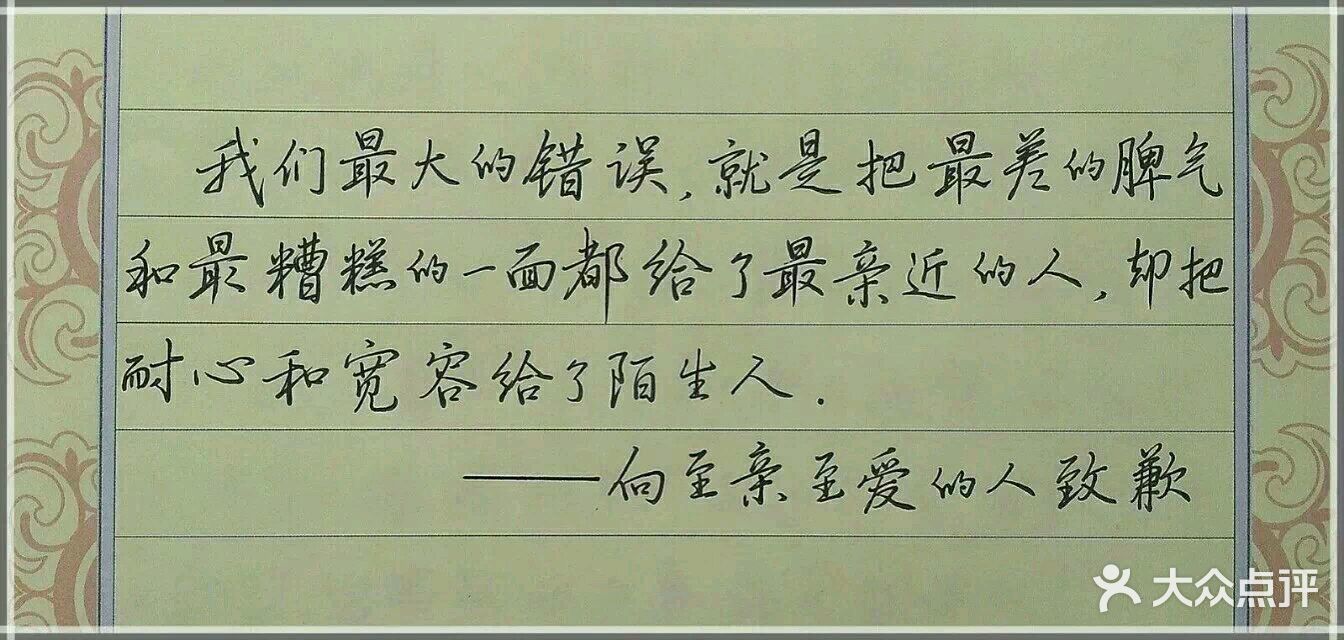 我们最大的错误,就是把最差的脾气
和最糟糕的一面都给了最亲近的人,却把
耐心和宽容给了陌生人.
——向至亲至爱的人致歉
大众点评